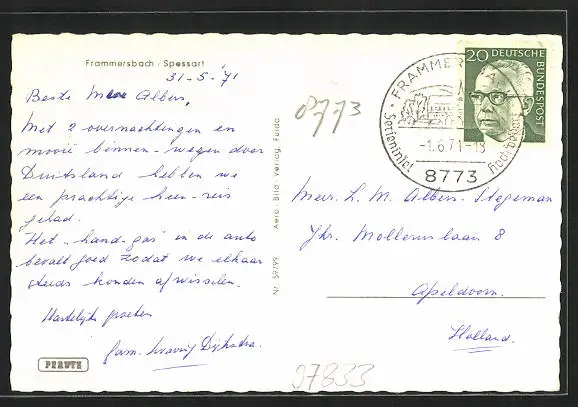 Frammersbach · Spessart
31-5-'71
Beste Albers,
Met 2 overnachtingen en
mooië binnen-wegen door
Duitsland hebben we
een prachtige heen-reis
gehad.
Het „hand-gas" in de auto
bevalt goed zodat we elkaar
steeds konden afwisselen.
Hartelijke groeten
fam. Dijkstra.
PERUTZ
Nr. 59799 Aero-Bild-Verlag Fulda
8773
20 DEUTSCHE BUNDESPOST
FRAMMERSBACH
Ferieninsel
-1.6.71-18
8773
Mevr. L. M. Albers-Stegeman
Jhr. Mollerus laan 8
Apeldoorn.
Holland.
97833